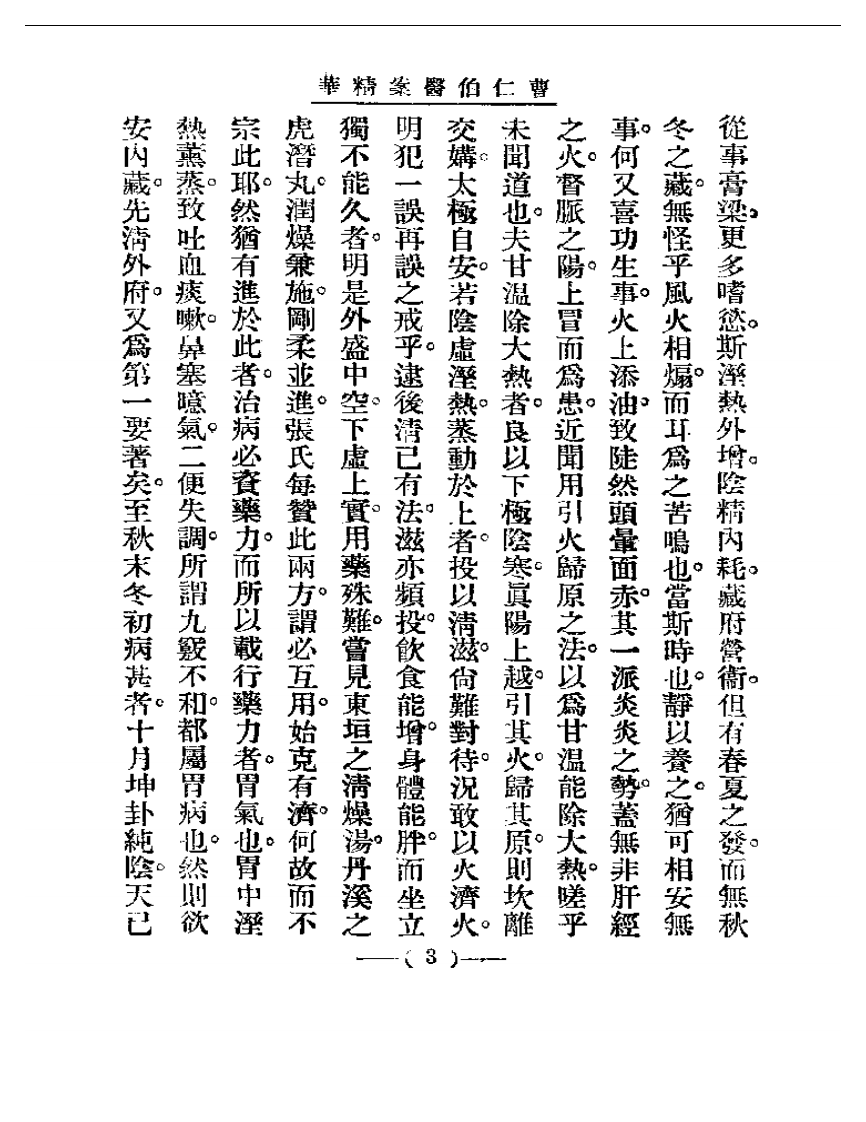 曹仁伯醫案精華
從事膏梁。更多嗜慾。斯溼熱外增。陰精內耗。藏府營衞。但有春夏之發。而無秋
冬之藏。無怪乎風火相煽。而耳爲之苦鳴也。當斯時也。靜以養之。猶可相安無
事。何又喜功生事。火上添油。致陡然頭暈面赤。其一派炎炎之勢。蓋無非肝經
之火。督脈之陽。上冒而爲患。近聞用引火歸原之法。以爲甘溫能除大熱。嗟乎
未聞道也。夫甘溫除大熱者。良以下極陰寒。眞陽上越。引其火。歸其原。則坎離
交媾。太極自安。若陰虛溼熱。蒸動於上者。投以清滋。尙難對待。況敢以火濟火。
明犯一誤再誤之戒乎。逮後清已有法。滋亦頻投。飲食能增。身體能胖。而坐立
獨不能久者。明是外盛中空。下虛上實。用藥殊難。嘗見東垣之清燥湯。丹溪之
虎潛丸。潤燥兼施。剛柔並進。張氏每贊此兩方。謂必互用。始克有濟。何故而不
宗此耶。然猶有進於此者。治病必資藥力。而所以載行藥力者。胃氣也。胃中溼
熱薰蒸。致吐血痰嗽。鼻塞噫氣。二便失調。所謂九竅不和。都屬胃病也。然則欲
安內藏。先清外府。又爲第一要著矣。至秋末冬初病甚者。十月坤卦純陰。天已
——( 3 )——